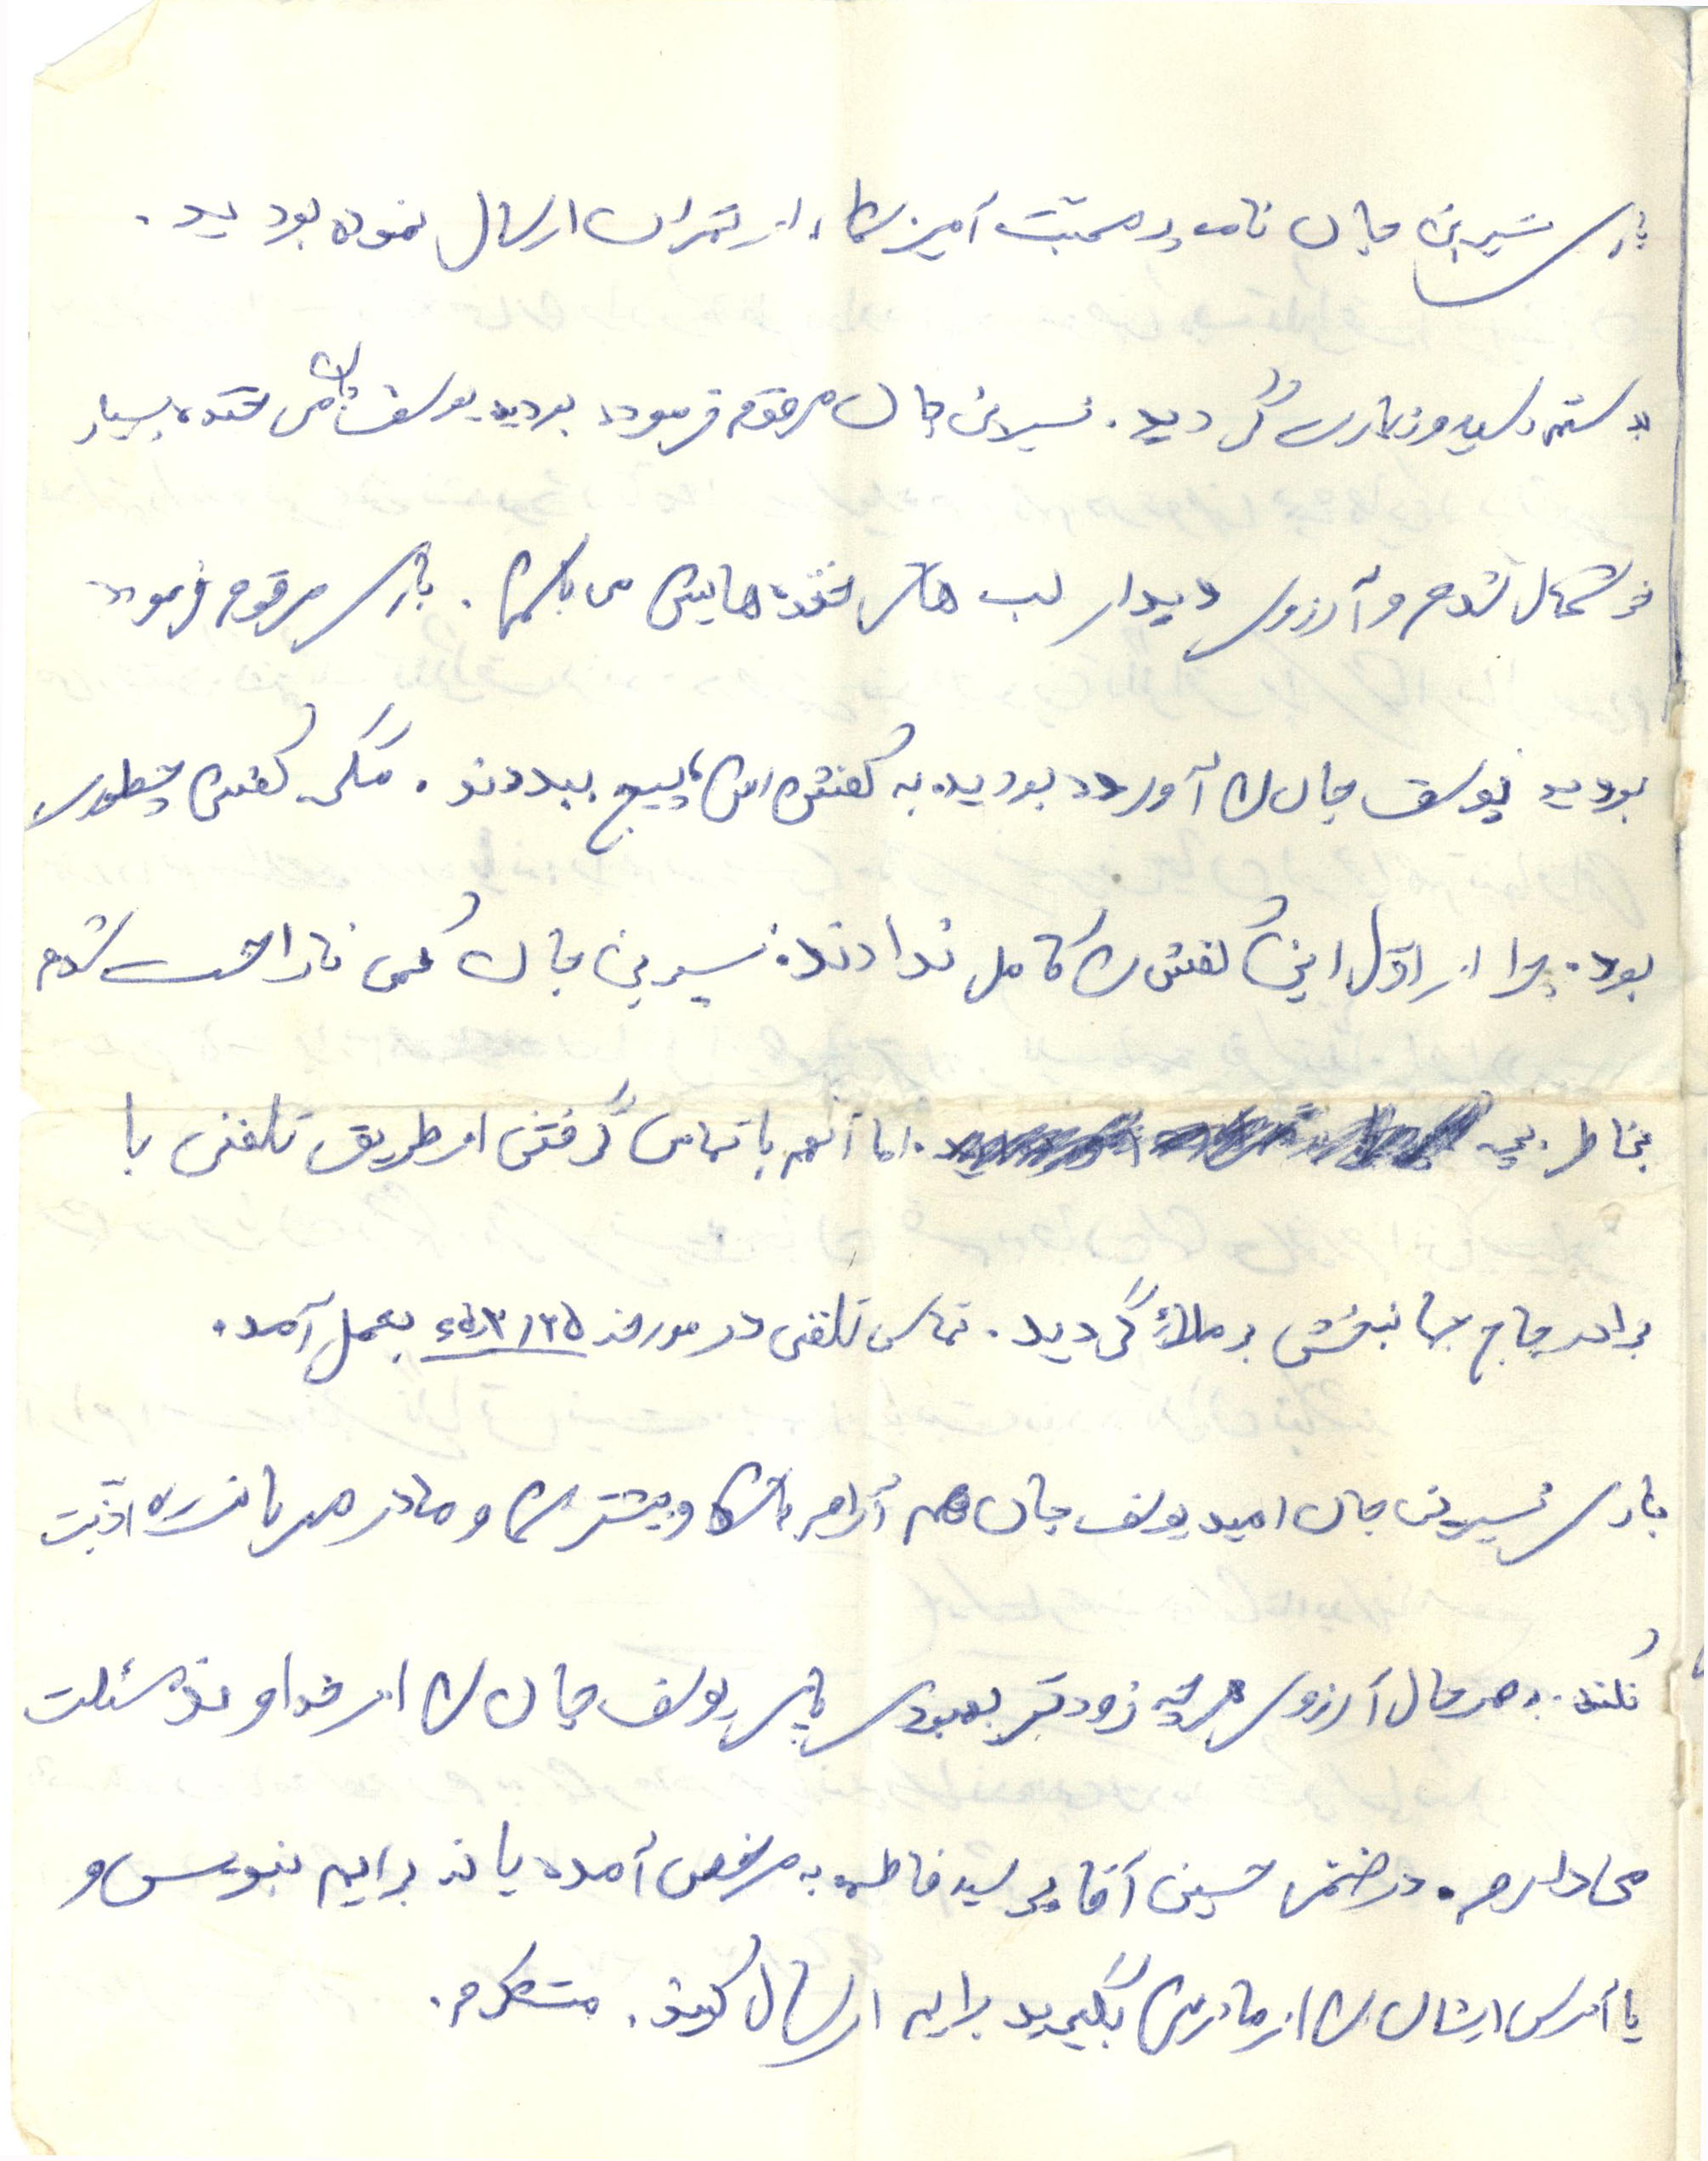 باری نسرین جان نامه پر محبت آمیز شما، از تهران ارسال نموده بودید.
بدستم رسید و زیارت گردید. نسرین جان مرقوم فرموده بودید یوسف جان می خندد، بسیار
خوشحال شدم و آرزوی دیدار لب های خنده هایش می باشم. باری مرقوم فرموده
بودید یوسف جان را آورده بودید به کفش اش پیچ ببندند. مگر کفش چطوری
بود. چرا از اول این کفش را کامل ندادند. نسرین جان کمی ناراحت شدم
بخاطر بچه اما آنهم با تماس گرفتن از طریق تلفنی با
برادر حاج جهانبخش برملاء گردید. تماس تلفنی در مورخه بعمل آمد.
باری نسرین جان امید یوسف جان هم آرام باشد و بیشتر شما و مادر مهربانت را اذیت
نکند. بهر حال آرزوی هر چه زودتر بهبودی پای یوسف جان را از خداوند مسئلت
می دارم. در ضمن حسین آقا پسر سید فاطمه به مرخصی آمده یا نه برایم بنویس و
یا آدرس ایشان را از مادرش بگیرید برایم ارسال کنید. متشکرم.